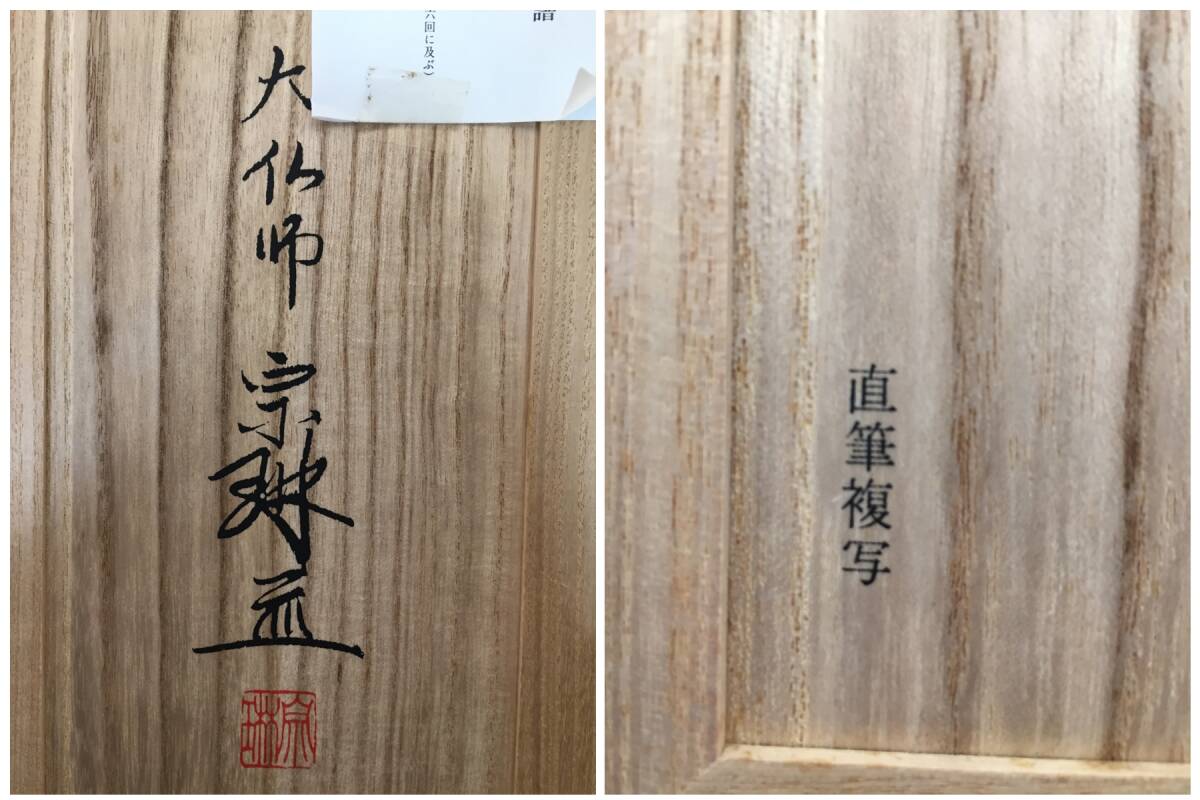 譜
六回に及ぶ)
大仏師 宗琳
宗琳
直筆複写